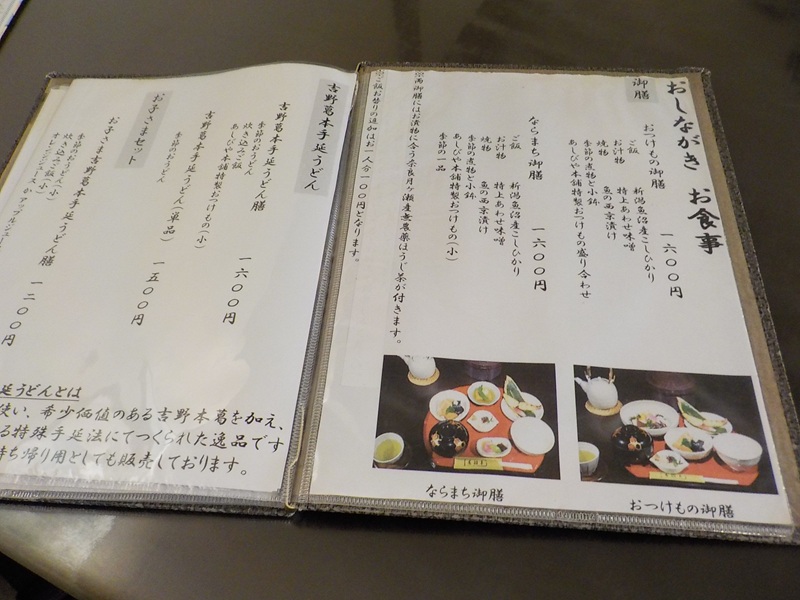 おしながき お食事
御膳
おつけもの御膳 一六〇〇円
ご飯 新潟魚沼産こしひかり
お汁物 特上あわせ味噌
焼物 魚の西京漬け
季節の煮物と小鉢
あしびや本舗特製おつけもの盛り合わせ
ならまち御膳 一六〇〇円
ご飯 新潟魚沼産こしひかり
お汁物 特上あわせ味噌
焼物 魚の西京漬け
季節の煮物と小鉢
あしびや本舗特製おつけもの(小)
季節の一品
両御膳にはお漬物に合う奈良月ヶ瀬産無農薬ほうじ茶が付きます。
ご飯お替りの追加はお一人分一〇〇円となります。
ならまち御膳
おつけもの御膳
吉野葛本手延うどん
吉野葛本手延うどん膳 一六〇〇円
季節のおうどん
炊き込みご飯
あしびや本舗特製おつけもの(小)
吉野葛本手延うどん(単品) 一五〇〇円
季節のおうどん
お子さまセット
お子さま吉野葛本手延うどん膳 一二〇〇円
季節のおうどん(小)
炊き込みご飯(小)
オレンジジュースか アップルジュース
延うどんとは
使い、希少価値のある吉野本葛を加え、
る特殊手延法にてつくられた逸品です
持ち帰り用としても販売しております。